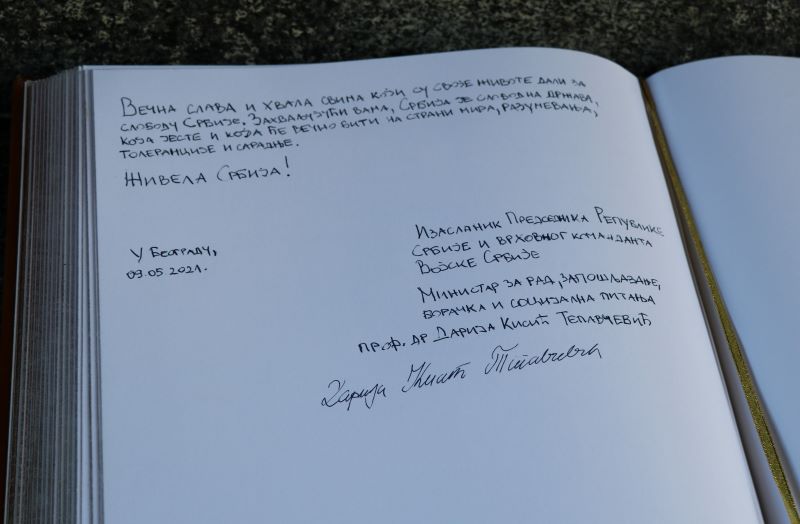 Вечна слава и хвала свима који су своје животе дали за
слободу Србије. Захваљујући вама, Србија је слободна држава,
која јесте и која ће вечно бити на страни мира, разумевања,
толеранције и сарадње.
Живела Србија!
У Београду,
09.05.2021.
Изасланик Председника Републике
Србије и врховног команданта
Војске Србије
Министар за рад, запошљавање,
борачка и социјална питања
проф. др Дарија Кисић Тепавчевић
Дарија Кисић Тепавчевић